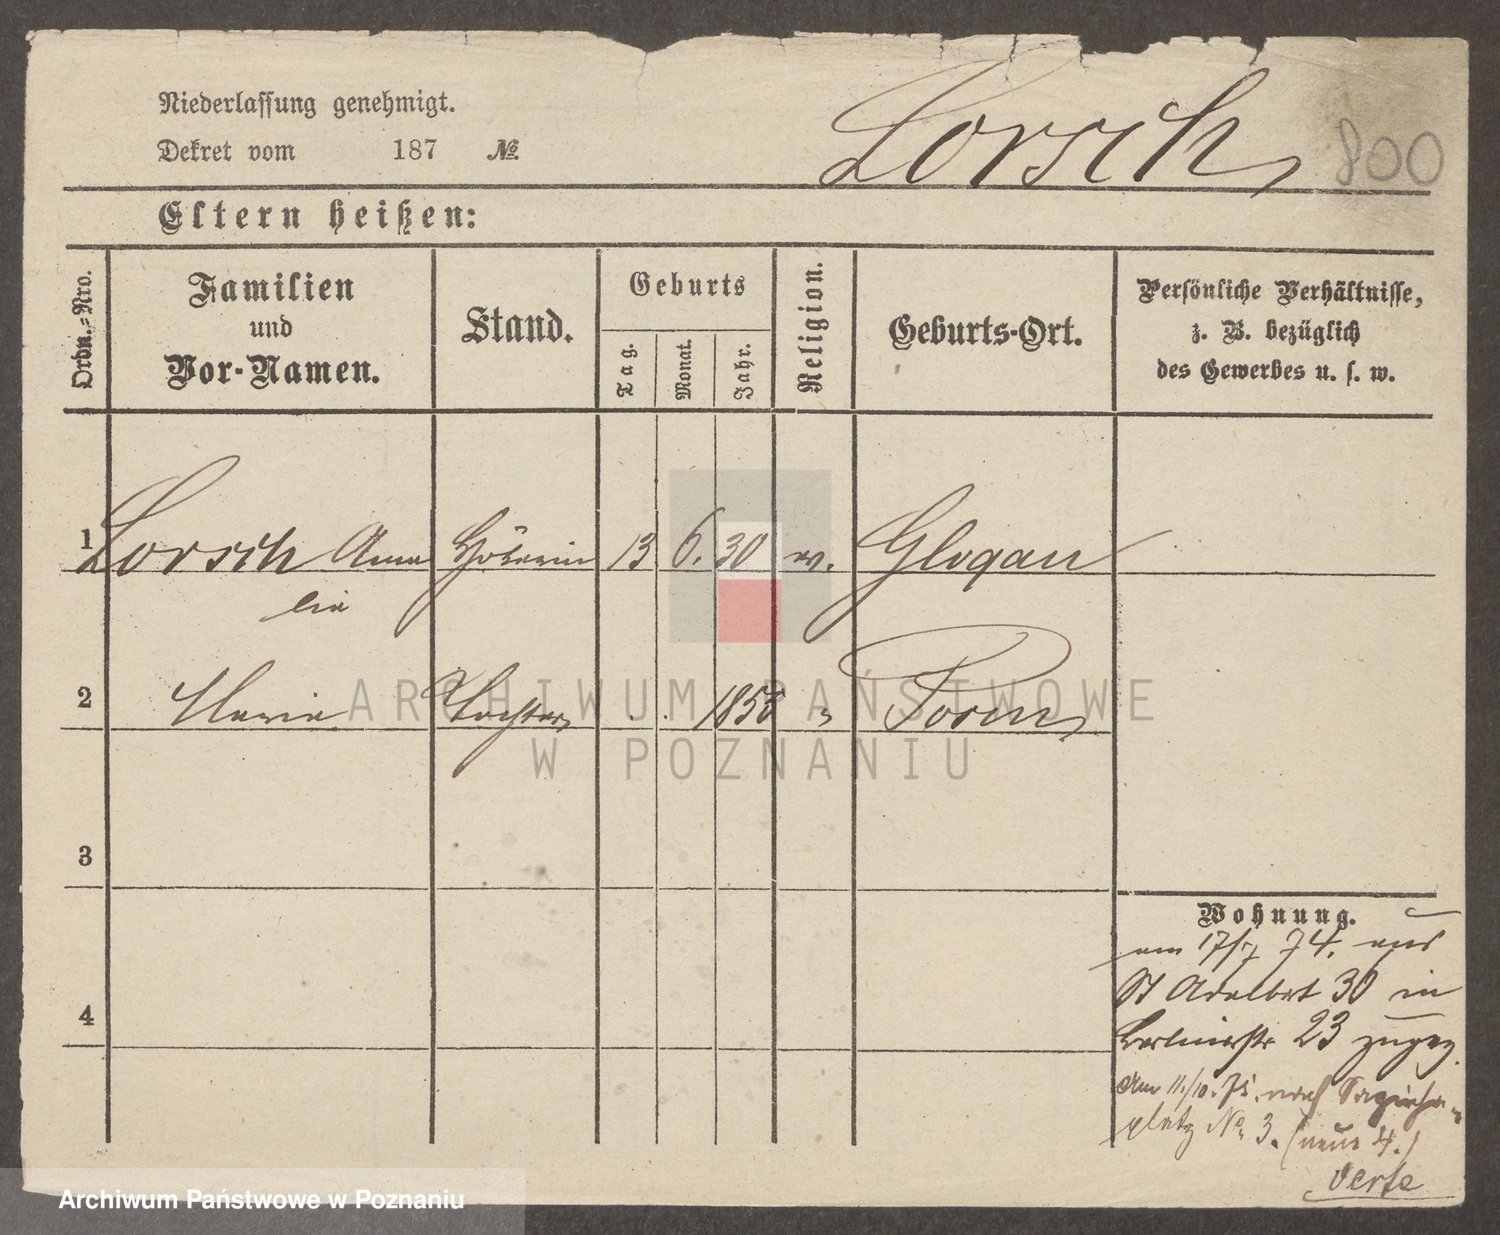 Niederlassung genehmigt.
Dekret vom 187 №
Lorsch 800
Eltern heißen:
Ordn.=Nro.
Familien
und
Vor-Namen.
Stand.
Geburts
Tag.
Monat.
Jahr.
Religion.
Geburts-Ort.
Persönliche Verhältnisse,
z. B. bezüglich
des Gewerbes u. s. w.
1 Lorsch Ama 13 6. 30 Glogau
lie
2 Maria Tochter 185 " Posen
3
4
Wohnung.
am 17/7 74. aus
St Adalbert 30 in
Berlinerstr 23 zugez.
Am 11./10. 75. nach
platz No 3. (neue 4.)
verte
ARCHIWUM PAŃSTWOWE
W POZNANIU
Archiwum Państwowe w Poznaniu